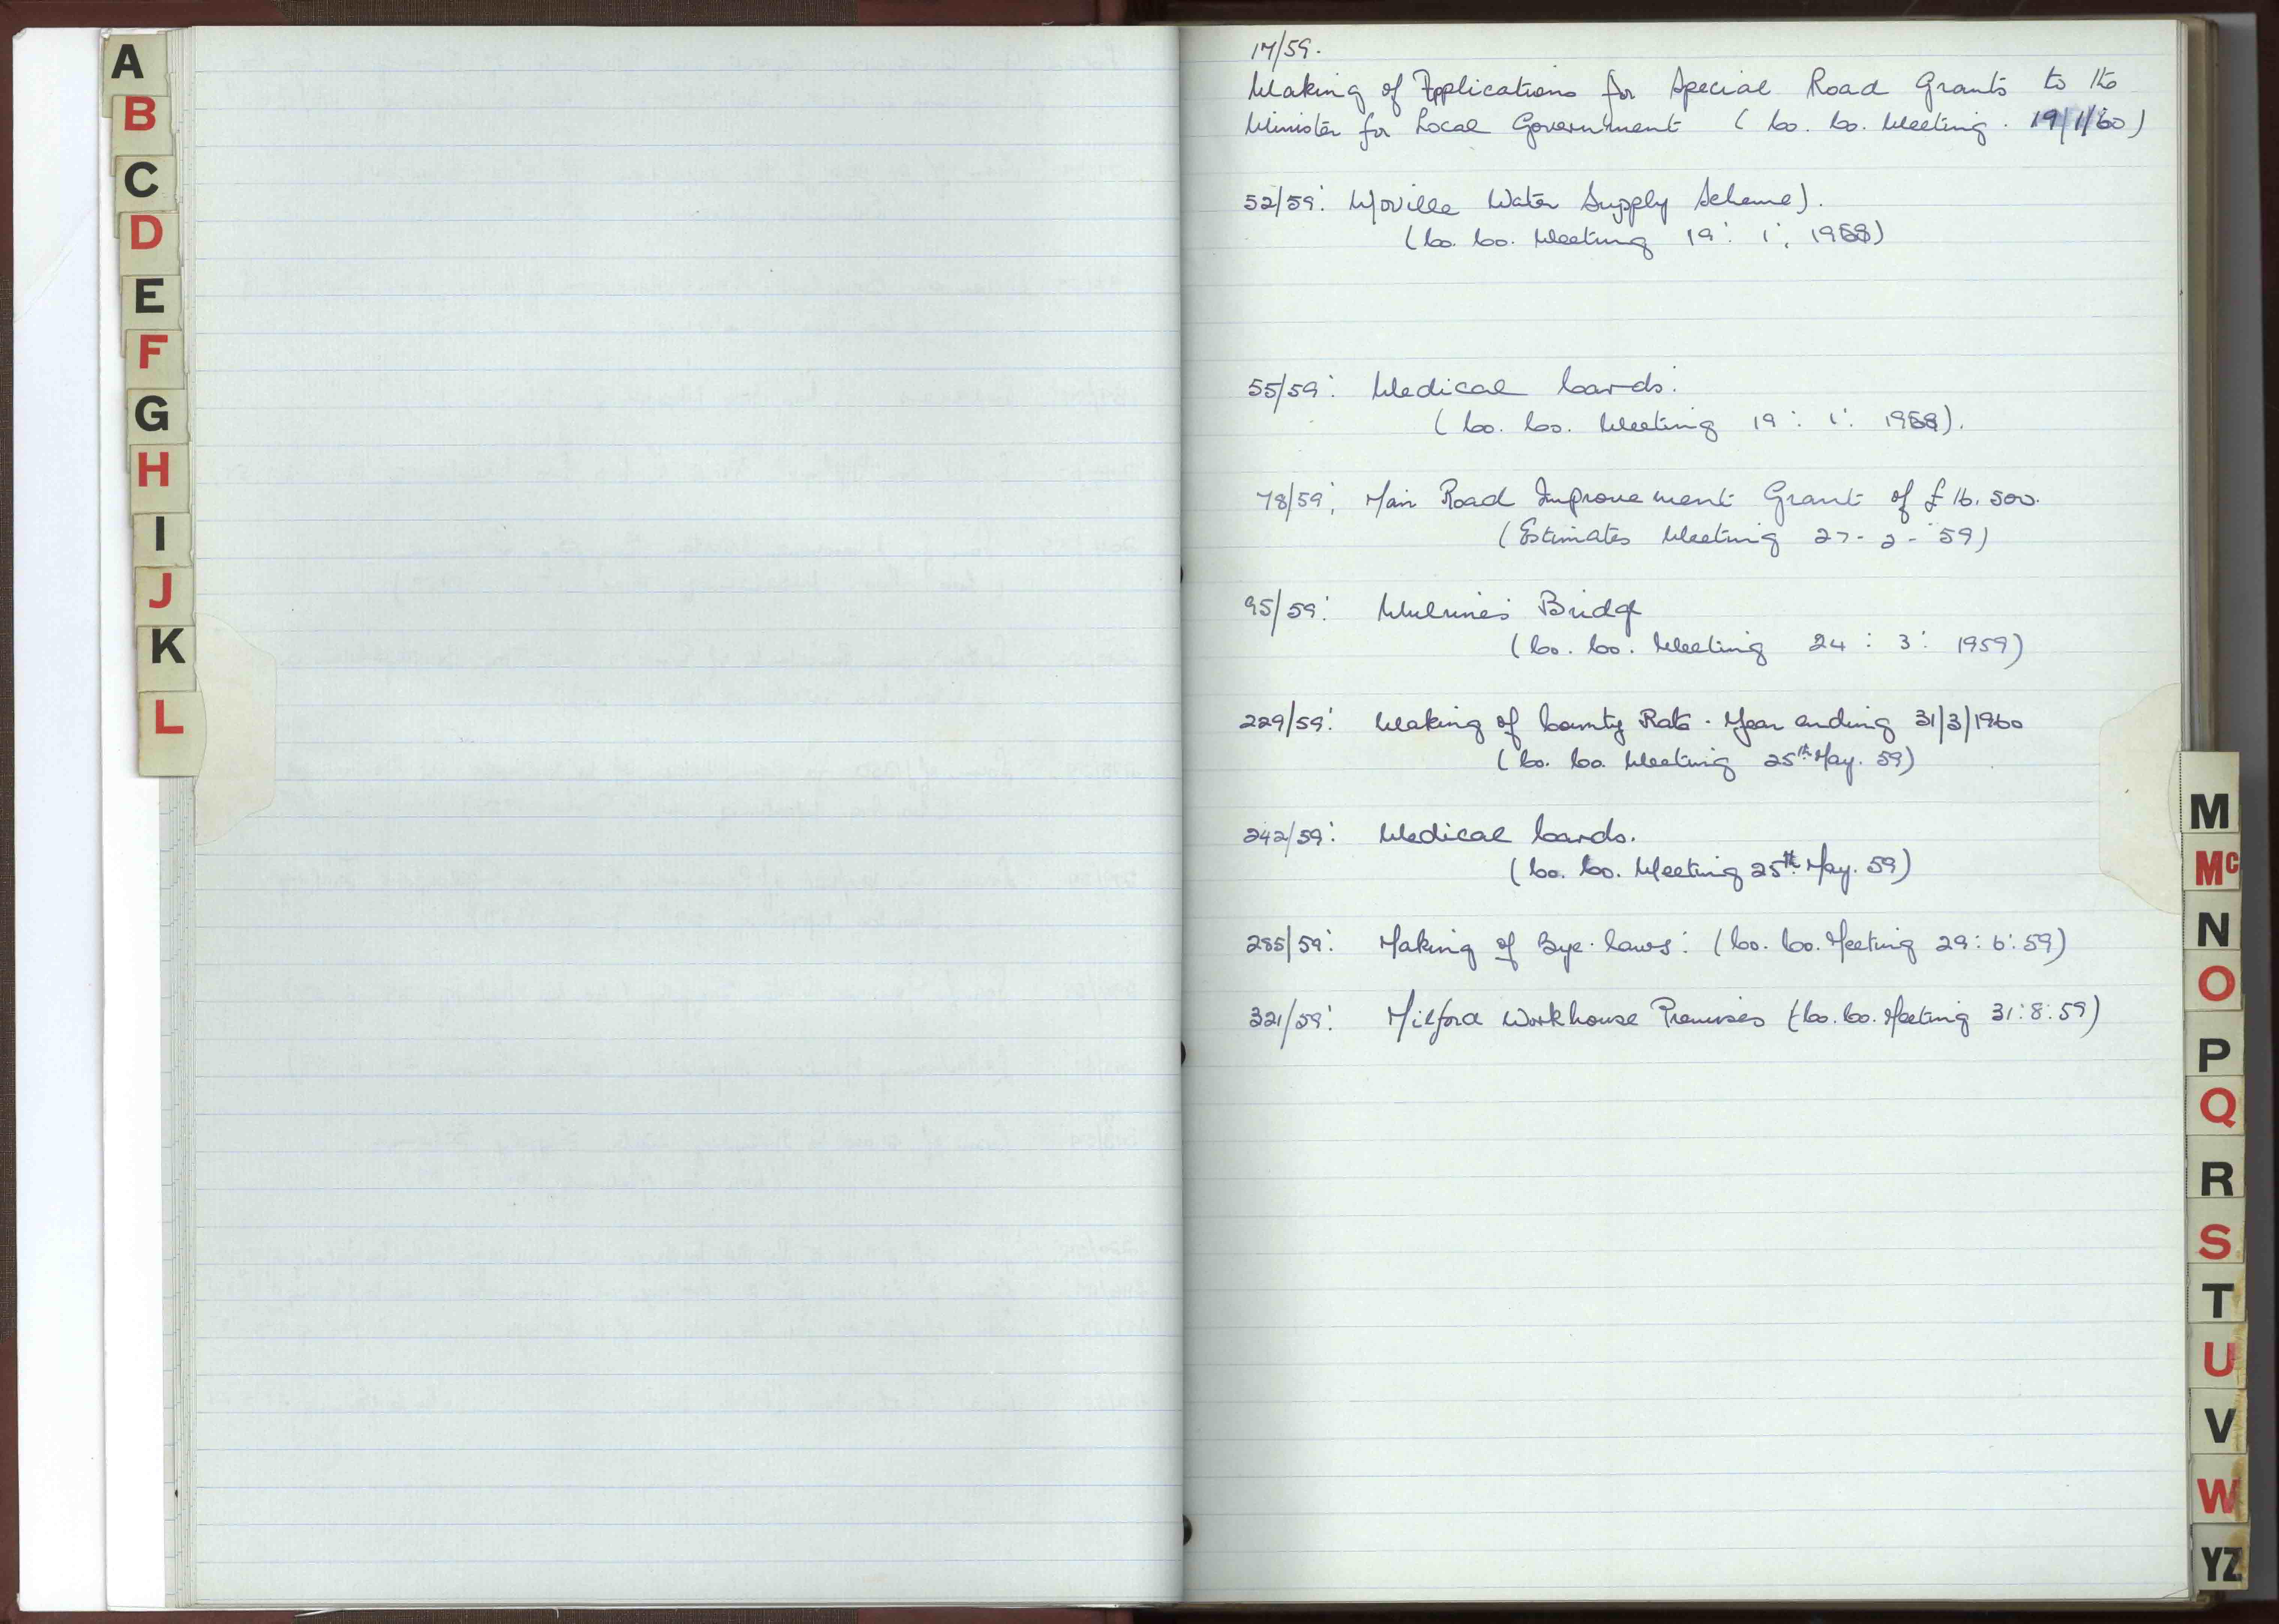 A
B
C
D
E
F
G
H
I
J
K
L
17/59.
Making of Applications for Special Road Grants to the
Minister for Local Government ( Co. Co. Meeting. 19/1/60)
52/59: Moville Water Supply Scheme).
(Co. Co. Meeting 19: 1:
55/59: Medical Cards:
( Co. Co. Meeting 19: 1:
78/59: Main Road Improvement Grant of £16.500.
(Estimates Meeting 27-2-59)
95/59: Mulrine's Bridge
(Co. Co. Meeting 24: 3: 1959)
229/59: Making of County Rate. Year ending 31/3/1960
(Co. Co. Meeting 25th May. 59)
242/59: Medical Cards.
(Co. Co. Meeting 25th May. 59)
285/59: Making of Bye-Laws: (Co. Co. Meeting 29:6:59)
321/59: Milford Workhouse Premises (Co. Co. Meeting 31:8:59)
M
Mc
N
O
P
Q
R
S
T
U
V
W
YZ